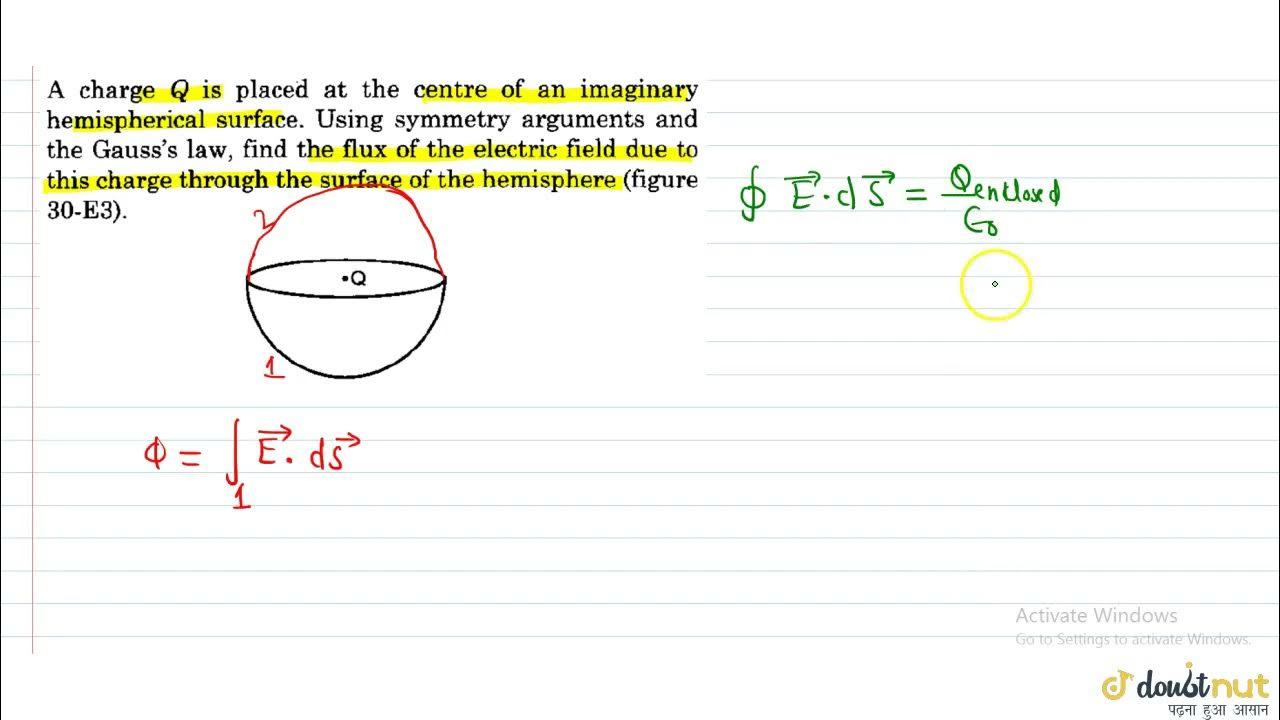 A charge Q is placed at the centre of an imaginary
hemispherical surface. Using symmetry arguments and
the Gauss's law, find the flux of the electric field due to
this charge through the surface of the hemisphere (figure
30-E3).
2
•Q
1
ϕ = ∫₁ E⃗ . dS⃗
∮ E⃗ . dS⃗ = Qenclosed / ϵ₀
Activate Windows
Go to Settings to activate Windows.
doubtnut
पढ़ना हुआ आसान